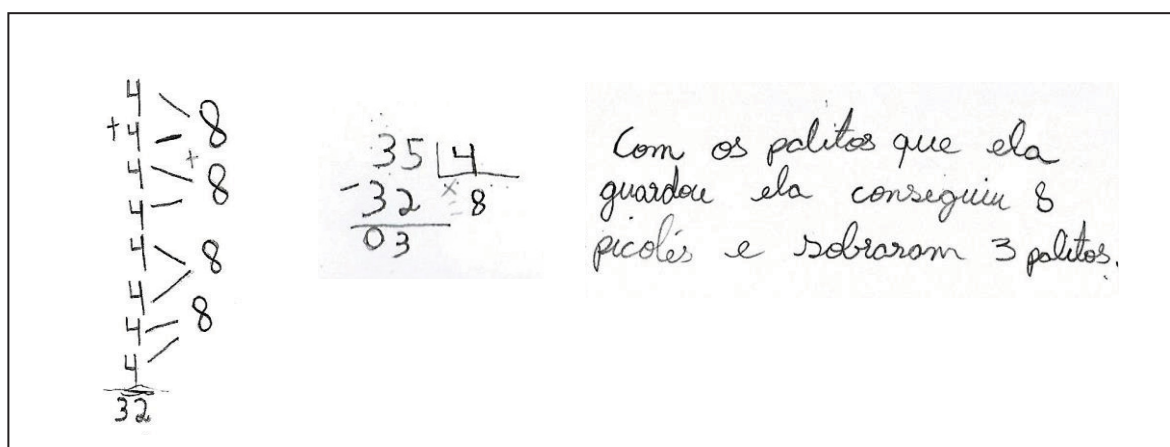 4
+4 8
4 + 8
4
4 8
4
4 8
4
32
35 | 4
-32 x 8
03
Com os palitos que ela
guardou ela conseguiu 8
picolés e sobraram 3 palitos.